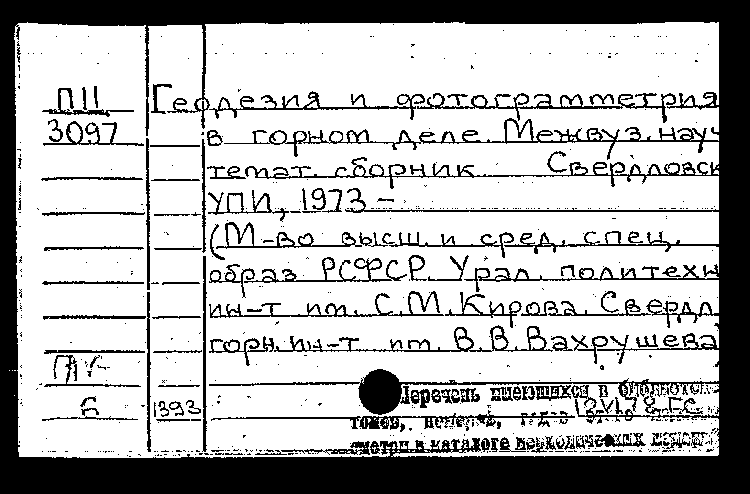 П11 Геодезия и фотограмметрия
3097 в горном деле. Межвуз. науч
темат. сборник Свердловск
УПИ, 1973 –
(М-во высш. и сред. спец.
образ РСФСР. Урал. политехн
ин-т им. С.М. Кирова. Свердл
горн. ин-т им. В.В. Вахрушева
Б 1393 Перечень имеющихся в библиотеке
томов, номеров,
смотри в каталоге периодических